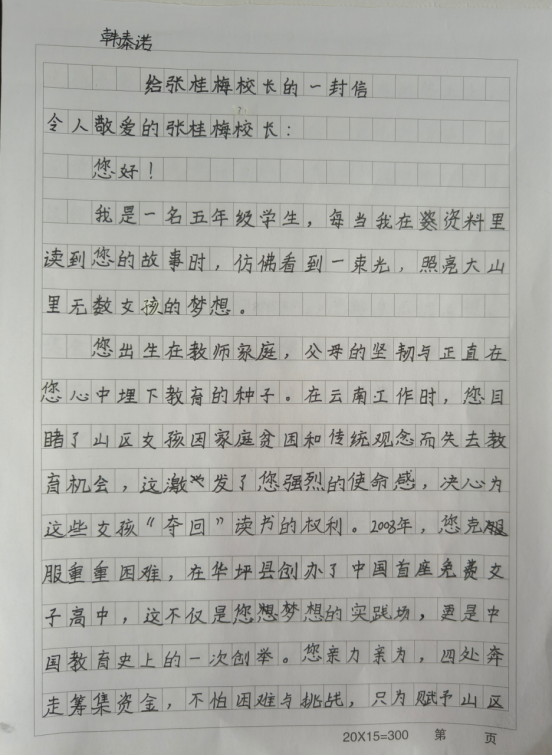 韩秦诺
给张桂梅校长的一封信
令人敬爱的张桂梅校长：
您好！
我是一名五年级学生，每当我在资料里
读到您的故事时，仿佛看到一束光，照亮大山
里无数女孩的梦想。
您出生在教师家庭，父母的坚韧与正直在
您心中埋下教育的种子。在云南工作时，您目
睹了山区女孩因家庭贫困和传统观念而失去教
育机会，这激发了您强烈的使命感，决心为
这些女孩“夺回”读书的权利。2008年，您克
服重重困难，在华坪县创办了中国首座免费女
子高中，这不仅是您想梦想的实践场，更是中
国教育史上的一次创举。您亲力亲为，四处奔
走筹集资金，不怕困难与挑战，只为赋予山区
20X15=300 第 页